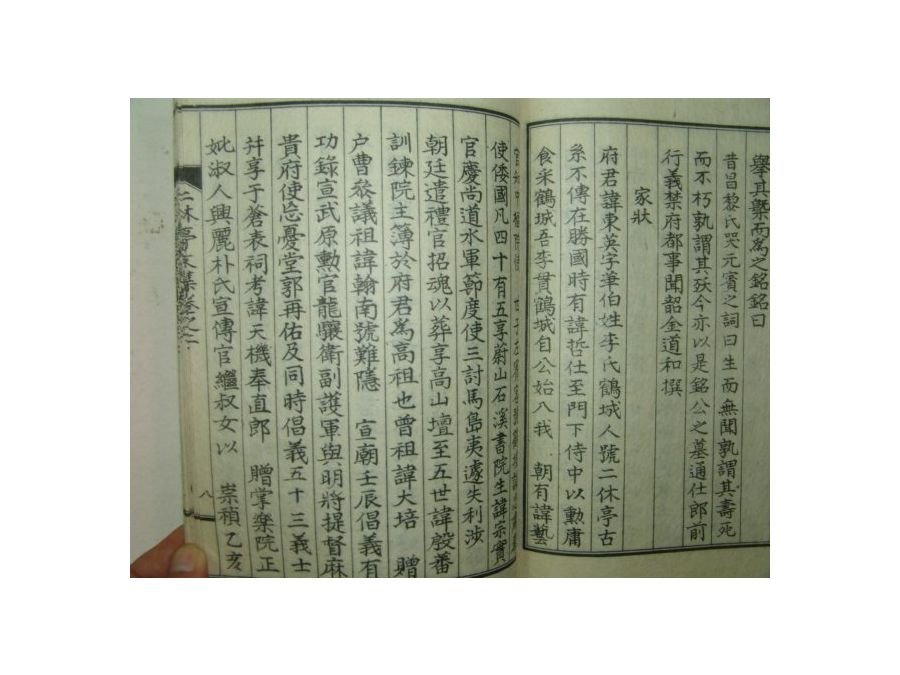 擧其槩而爲之銘銘曰
昔昌黎氏哭元賓之詞曰生而無聞孰謂其壽死
而不朽孰謂其殀今亦以是銘公之墓通仕郎前
行義禁府都事聞韶金道和撰
家狀
府君諱東英字華伯姓李氏鶴城人號二休亭古
系不傳在勝國時有諱哲仕至門下侍中以勳庸
食采鶴城吾李貫鶴城自公始入我 朝有諱藝
使倭國凡四十有五享蔚山石溪書院生諱宗實
官慶尚道水軍節度使三討馬島夷遽失利涉
朝廷遣禮官招魂以葬享高山壇至五世諱殷番
訓鍊院主簿於府君爲高祖也曾祖諱大培 贈
户曹叅議祖諱翰南號難隱 宣朝壬辰倡義有
功錄宣武原勳官龍驤衛副護軍與明將提督麻
貴府使忘憂堂郭再佑及同時倡義五十三義士
并享于蒼表祠考諱天機奉直郎 贈掌樂院正
妣淑人興麗朴氏宣傳官繼叔女以 崇禎乙亥
二休亭文集卷之二
八